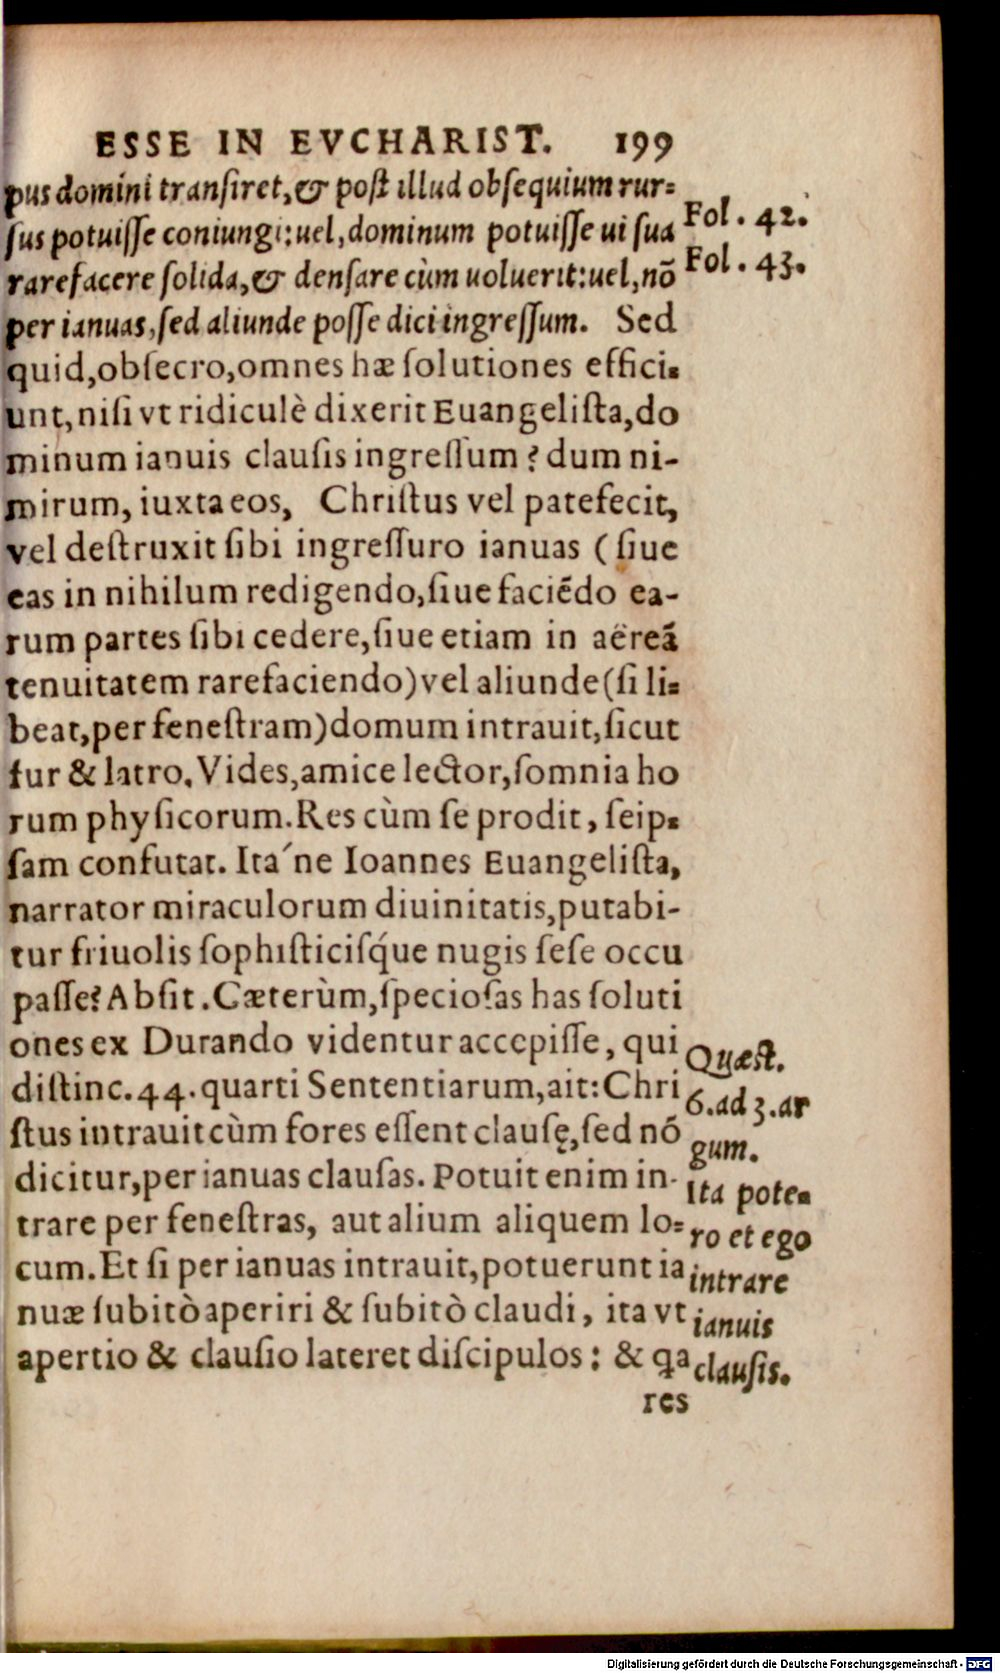 ESSE IN EVCHARIST. 199
pus domini transiret, & post illud obsequium rur=
sus potuisse coniungi: uel, dominum potuisse ui sua
rarefacere solida, & densare cùm uoluerit: uel, nõ
per ianuas, sed aliunde posse dici ingressum. Sed
quid, obsecro, omnes hæ solutiones effici=
unt, nisi vt ridiculè dixerit Euangelista, do
minum ianuis clausis ingressum? dum ni-
mirum, iuxta eos, Christus vel patefecit,
vel destruxit sibi ingressuro ianuas (siue
eas in nihilum redigendo, siue faciẽdo ea-
rum partes sibi cedere, siue etiam in aëreã
tenuitatem rarefaciendo) vel aliunde (si li=
beat, per fenestram) domum intrauit, sicut
fur & latro. Vides, amice lector, somnia ho
rum physicorum. Res cùm se prodit, seip=
sam confutat. Ita´ne Ioannes Euangelista,
narrator miraculorum diuinitatis, putabi-
tur friuolis sophisticisq́ue nugis sese occu
passe? Absit. Cæterùm, speciosas has soluti
ones ex Durando videntur accepisse, qui
distinc. 44. quarti Sententiarum, ait: Chri
stus intrauit cùm fores essent clausę, sed nõ
dicitur, per ianuas clausas. Potuit enim in-
trare per fenestras, aut alium aliquem lo=
cum. Et si per ianuas intrauit, potuerunt ia
nuæ subitò aperiri & subitò claudi, ita vt
apertio & clausio lateret discipulos: & qa
res
Fol. 42.
Fol. 43.
Quæst.
6. ad 3. ar
gum.
Ita pote=
ro et ego
intrare
ianuis
clausis.
Digitalisierung gefördert durch die Deutsche Forschungsgemeinschaft - DFG